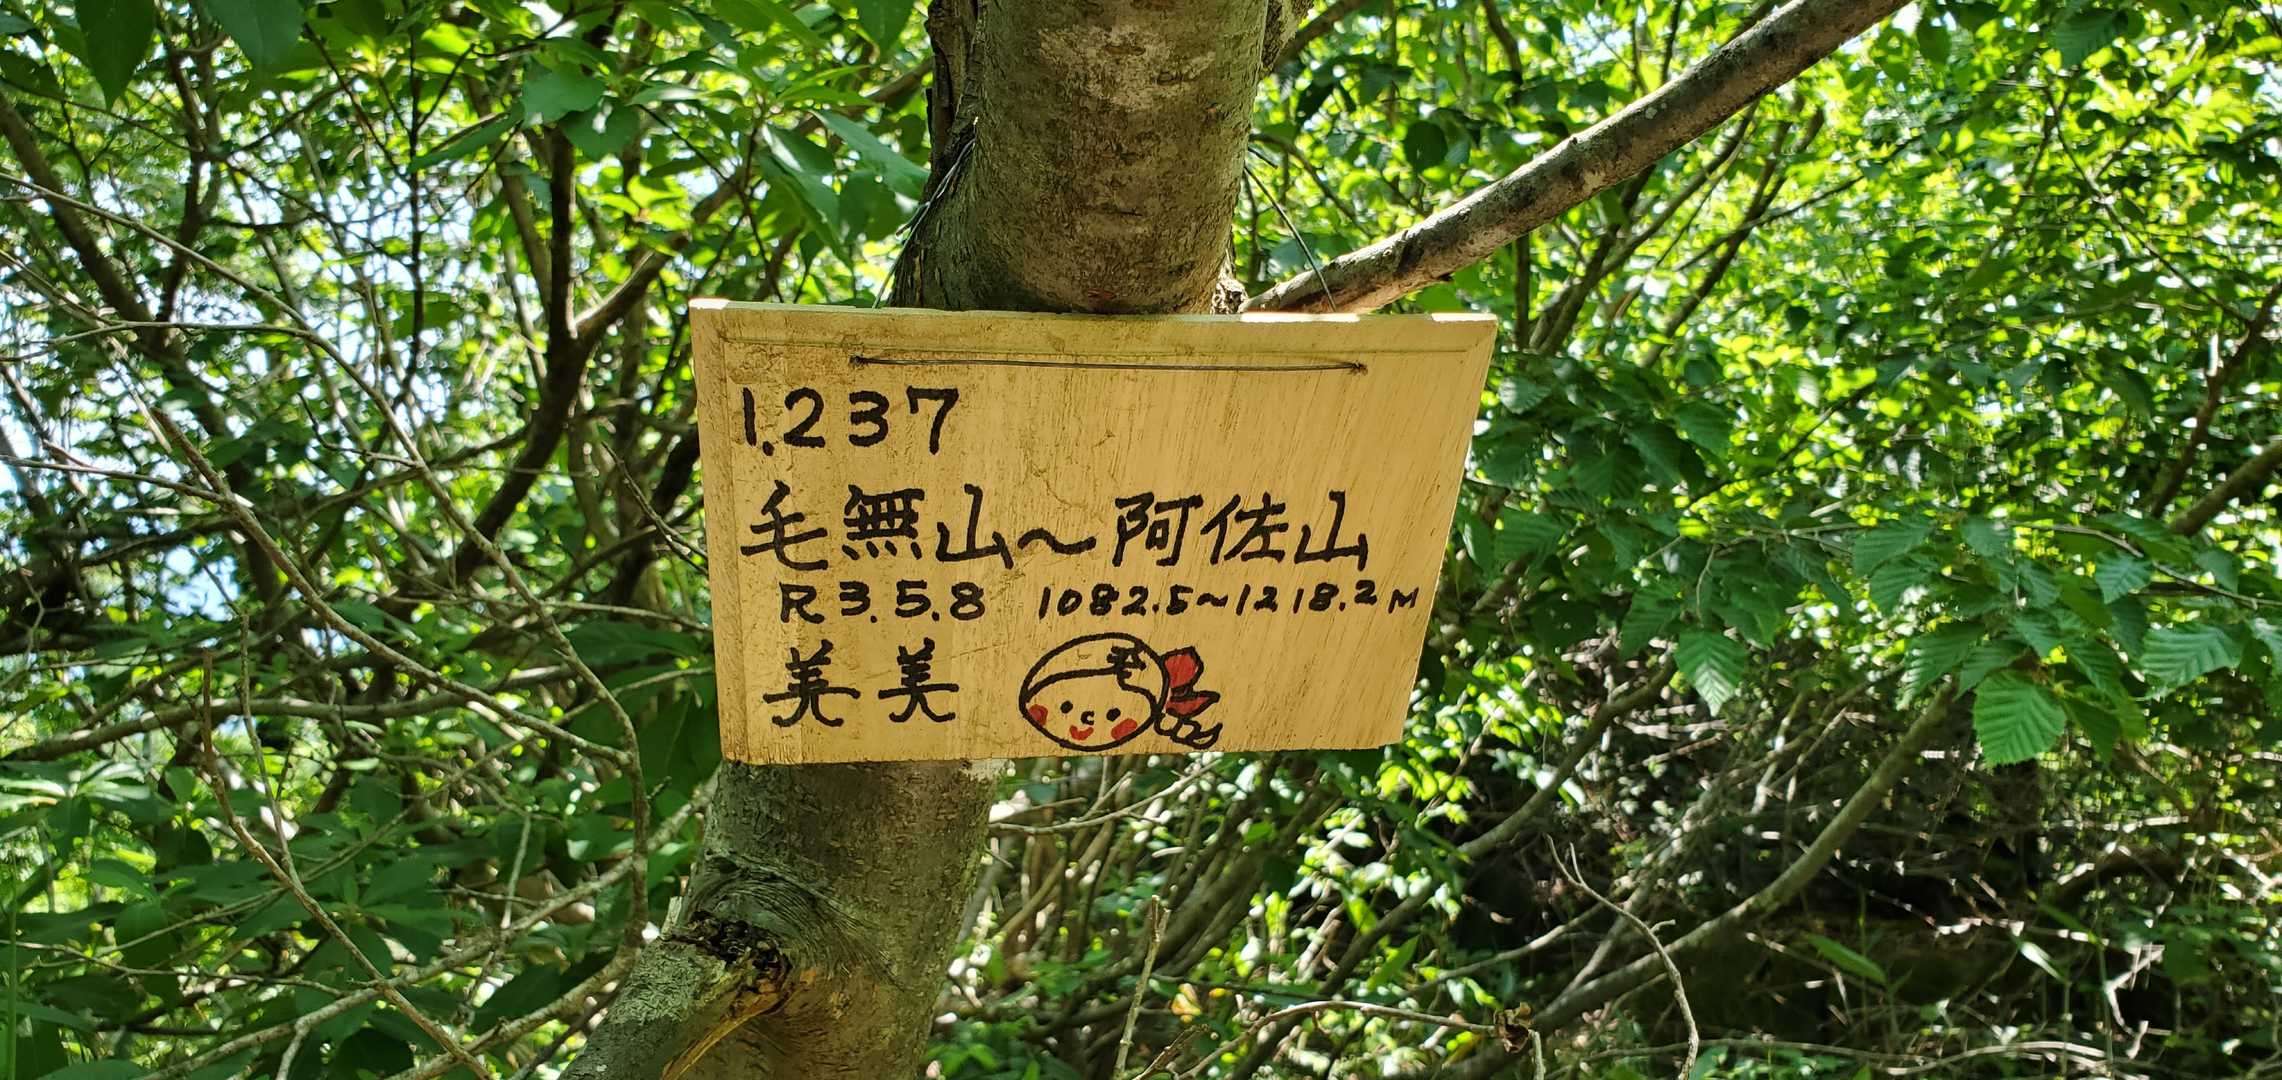 1,237
毛無山～阿佐山
R3.5.8 1082.5～1218.2M
美美
毛